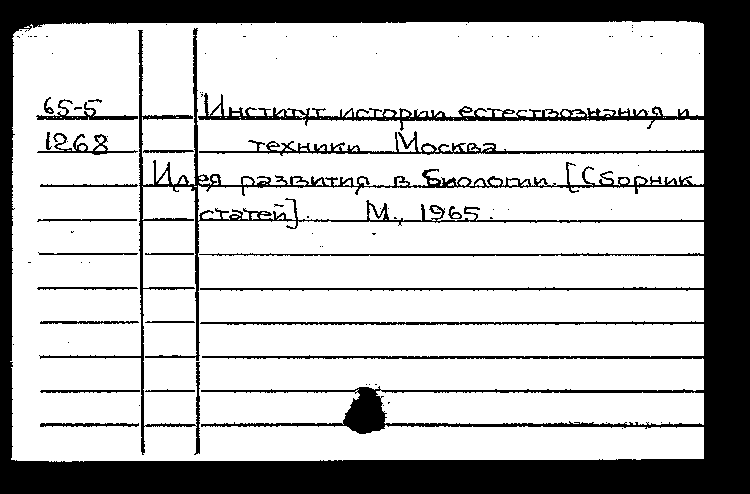 65-5 Институт истории естествознания и
1268 техники. Москва.
Идея развития в биологии. [Сборник
статей]. М., 1965.